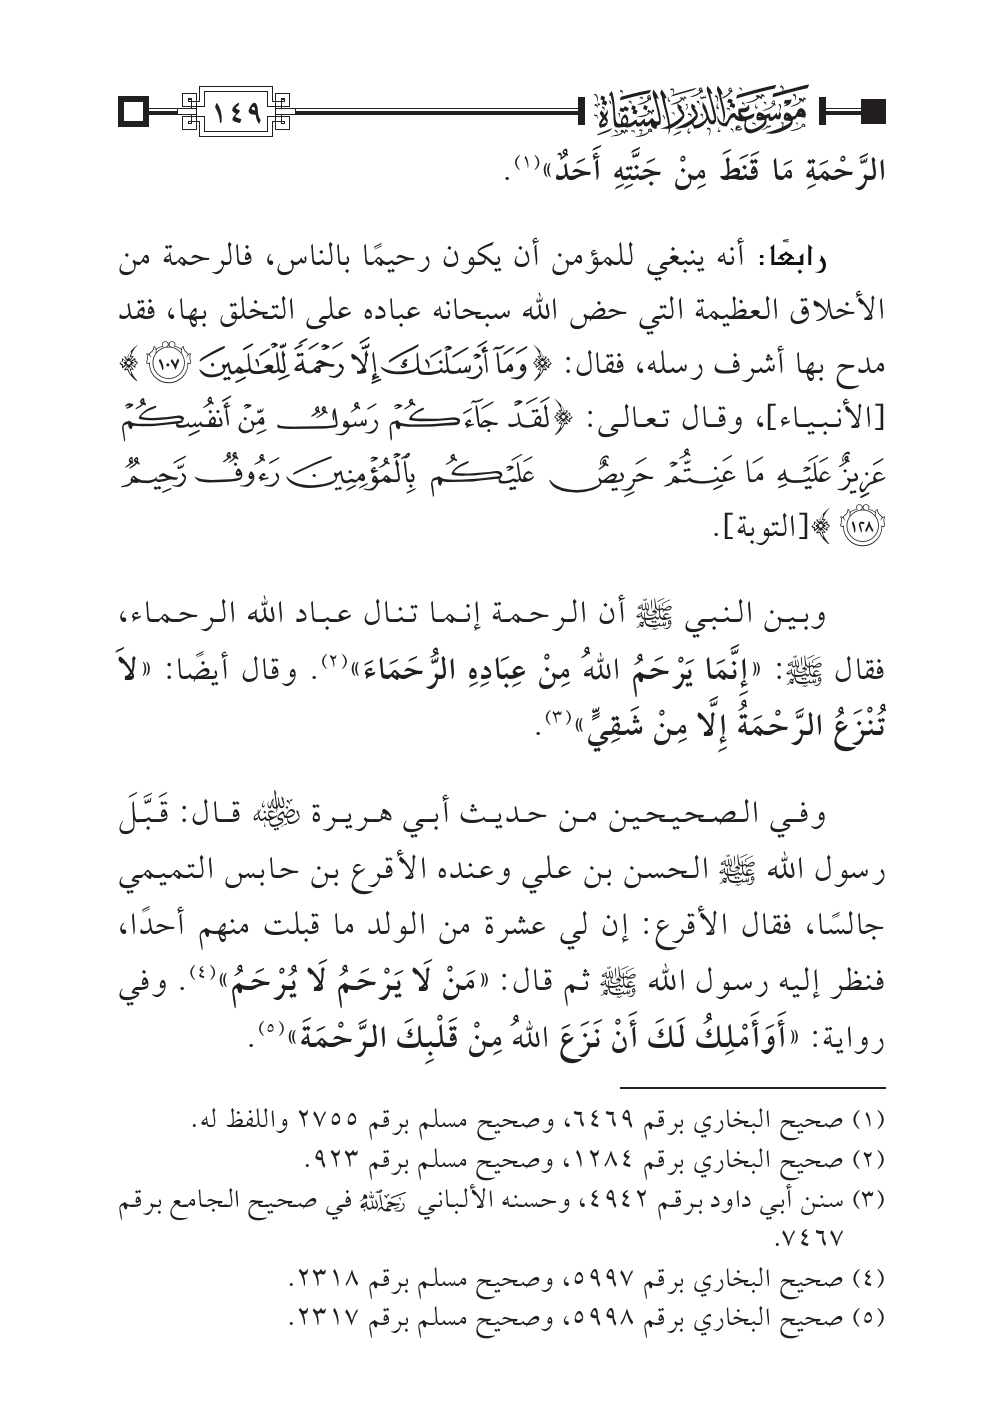 موسوعة الدرر المنتقاة
١٤٩
الرَّحْمَةِ مَا قَنَطَ مِنْ جَنَّتِهِ أَحَدٌ»(١).
رابعًا: أنه ينبغي للمؤمن أن يكون رحيمًا بالناس، فالرحمة من
الأخلاق العظيمة التي حض الله سبحانه عباده على التخلق بها، فقد
مدح بها أشرف رسله، فقال: ﴿وَمَآ أَرْسَلْنَٰكَ إِلَّا رَحْمَةً لِّلْعَٰلَمِينَ ١٠٧﴾
[الأنبياء]، وقال تعالى: ﴿لَقَدْ جَآءَكُمْ رَسُولٌ مِّنْ أَنفُسِكُمْ
عَزِيزٌ عَلَيْهِ مَا عَنِتُّمْ حَرِيصٌ عَلَيْكُم بِٱلْمُؤْمِنِينَ رَءُوفٌ رَّحِيمٌ
١٢٨﴾ [التوبة].
وبين النبي ﷺ أن الرحمة إنما تنال عباد الله الرحماء،
فقال ﷺ: «إِنَّمَا يَرْحَمُ اللهُ مِنْ عِبَادِهِ الرُّحَمَاءَ»(٢). وقال أيضًا: «لاَ
تُنْزَعُ الرَّحْمَةُ إِلَّا مِنْ شَقِيٍّ»(٣).
وفي الصحيحين من حديث أبي هريرة رضي الله عنه قال: قَبَّلَ
رسول الله ﷺ الحسن بن علي وعنده الأقرع بن حابس التميمي
جالسًا، فقال الأقرع: إن لي عشرة من الولد ما قبلت منهم أحدًا،
فنظر إليه رسول الله ﷺ ثم قال: «مَنْ لَا يَرْحَمُ لَا يُرْحَمُ»(٤). وفي
رواية: «أَوَأَمْلِكُ لَكَ أَنْ نَزَعَ اللهُ مِنْ قَلْبِكَ الرَّحْمَةَ»(٥).
(١) صحيح البخاري برقم ٦٤٦٩، وصحيح مسلم برقم ٢٧٥٥ واللفظ له.
(٢) صحيح البخاري برقم ١٢٨٤، وصحيح مسلم برقم ٩٢٣.
(٣) سنن أبي داود برقم ٤٩٤٢، وحسنه الألباني رحمه الله في صحيح الجامع برقم
٧٤٦٧.
(٤) صحيح البخاري برقم ٥٩٩٧، وصحيح مسلم برقم ٢٣١٨.
(٥) صحيح البخاري برقم ٥٩٩٨، وصحيح مسلم برقم ٢٣١٧.